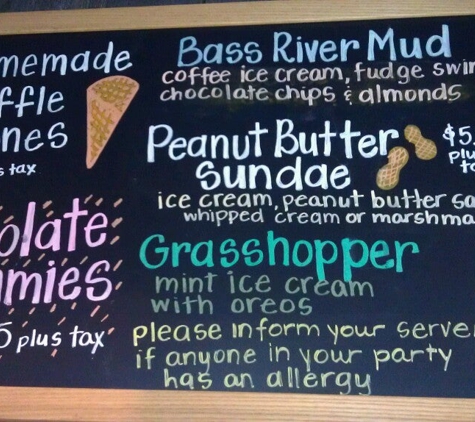 memade
ffle
nes
s tax
olate
mmies
5 plus tax
Bass River Mud
coffee ice cream, fudge swir
chocolate chips & almonds
Peanut Butter
Sundae
$5.
plu
ta
ice cream, peanut butter sa
whipped cream or marshma
Grasshopper
mint ice cream
with oreos
please inform your serve
if anyone in your party
has an allergy